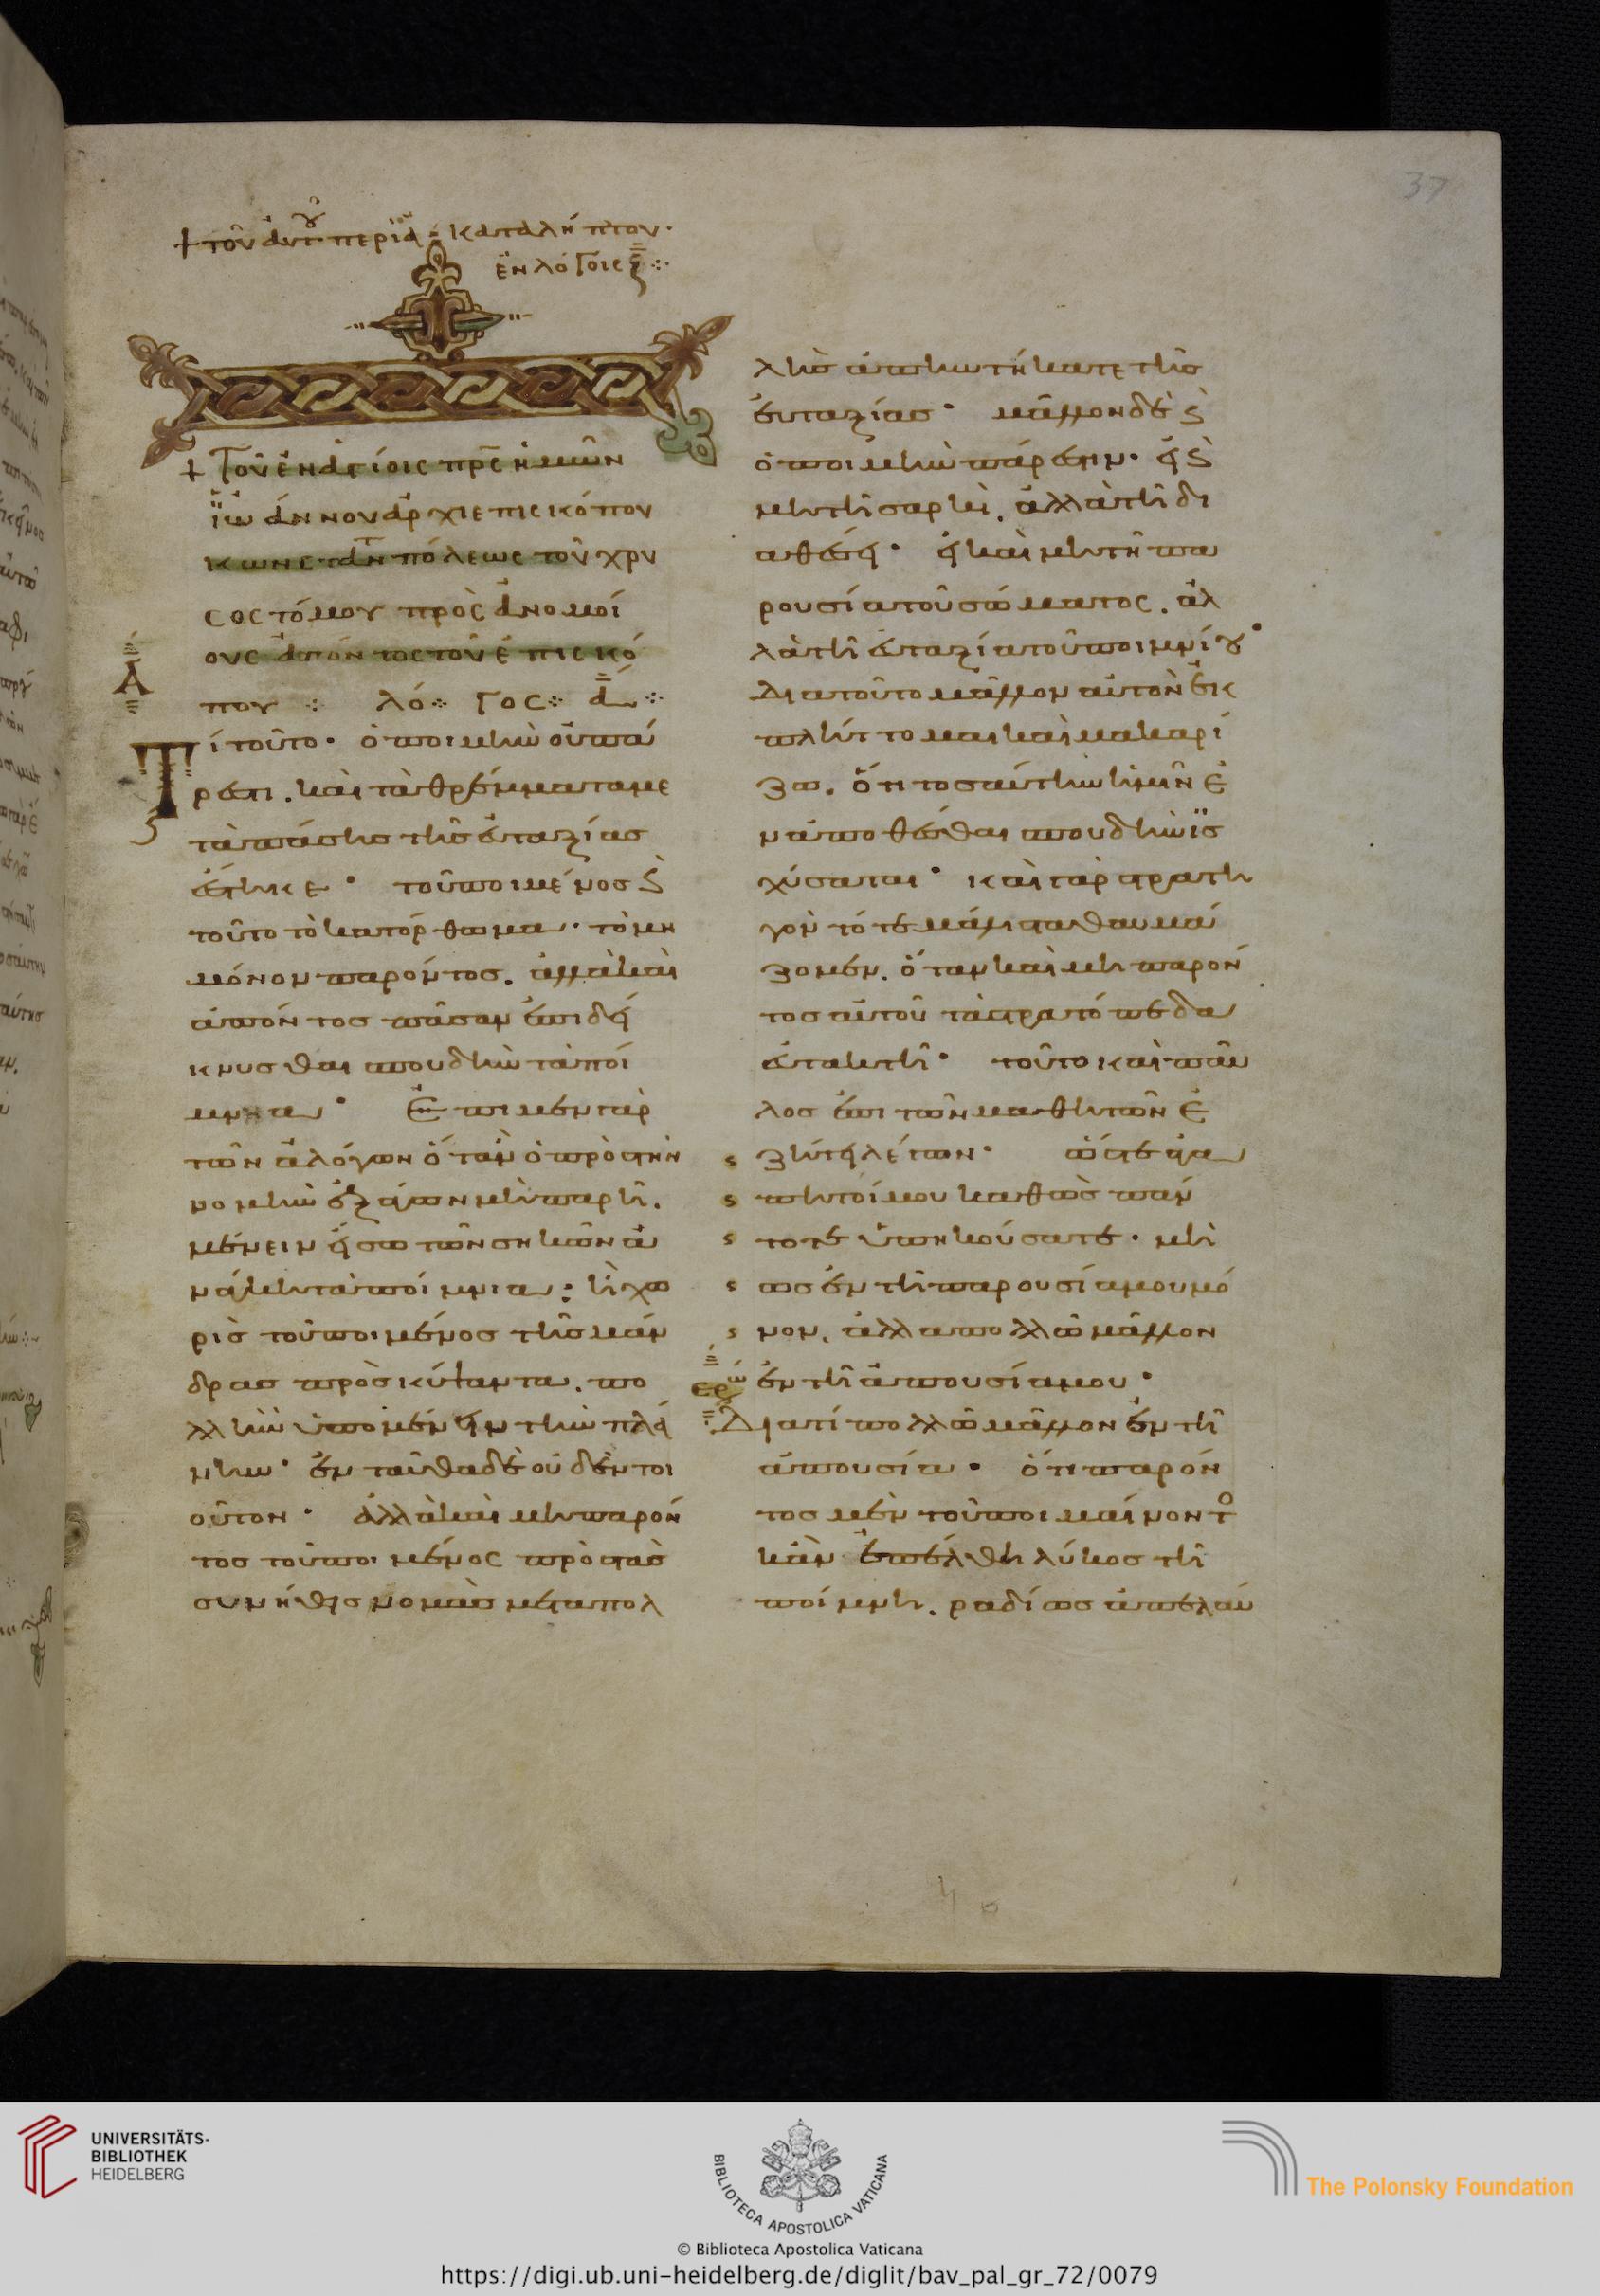 37
+ τοῦ αὐτοῦ περὶ ἀκαταλήπτου·
ἐν λόγοις ξ̄ ⁘
+ Τοῦ ἐν ἁγίοις πρ̅ς ἡμῶν
ἰω άννου ἀρχιεπισκόπου
κωνσταν πόλεως τοῦ χρυ
σοστόμου πρὸς ἀνομοί
ους ἀπόντος τοῦ ἐπισκό
που ⁘ λόγος ⁘ ᾱ ⁘
Α
Τί τοῦτο· ὁ ποιμὴν οὐ πά
ρεστι. καὶ τὰ θρέμματα με
τὰ πάσης τῆς εὐταξίας
ἕστηκε· τοῦ ποιμένος δὲ
τοῦτο τὸ κατόρθωμα· τὸ μὴ
μόνον παρόντος. ἀλλὰ καὶ
ἀπόντος πᾶσαν ἐπιδεί
κνυσθαι σπουδὴν τὰ ποί
μνια· Ἐπι μὲν γὰρ
τῶν ἀλόγων ὅταν ὁ πρὸς τὴν
νομὴν ἐξάγων μὴ παρῆ.
μένειν εἴσω τῶν σηκῶν ἀ
νάγκη τὰ ποίμνια; ἢ χω
ρὶς τοῦ ποιμένος τῆς μάν
δρας προσκύψαντα. πο
λλὴν ὑπομένειν τὴν πλά
νην· ἐνταῦθα δὲ οὐδὲν τοι
οῦτον· ἀλλὰ καὶ μὴ παρόν
τος τοῦ ποιμένος πρὸς τὰς
συνήθεις νομὰς μετα πολ
λῆς ἀπηντήκατε τῆς
εὐταξίας· μᾶλλον δὲ καὶ
ὁ ποιμὴν πάρεστιν· εἰ καὶ
μὴ τῆ σαρκὶ. ἀλλὰ τῆ δι
αθέσει· εἰ καὶ μὴ τῆ πα
ρουσία τοῦ σώματος. ἀλ
λὰ τῆ εὐταξία τοῦ ποιμνίου·
Διατοῦτο μᾶλλον αὐτὸν ἐκ
πλήττομαι καὶ μακαρί
ζω. ὅτι τοσαύτην ὑμῖν ἐ
ναποθέσθαι σπουδὴν ἴς
χύσαται· καὶ γὰρ στρατη
γὸν τότε μάλιστα θαυμά
ζομεν. ὅταν καὶ μὴ παρόν
τος αὐτοῦ τὰ στρατόπεδα
εὐτακτῆ· τοῦτο καὶ παῦ
λος ἐπι τῶν μαθητῶν ἐ
ζήτει λέγων· ὥστε ἀγα
πητοί μου καθὼς πάν
τοτε ὑπηκούσατε. μὴ
ὡς ἐν τῆ παρουσία μου μό
νον. ἀλλα πολλῶ μᾶλλον
ἐν τῆ ἀπουσία μου·
Διατί πολλῶ μᾶλλον ἐν τῆ
ἀπουσία· ὅτι παρόν
τος μὲν τοῦ ποιμαίνοντο
κἂν ἐπέλθη λύκος τῆ
ποίμνη. ραδίως ἀπελαύ
UNIVERSITÄTS-
BIBLIOTHEK
HEIDELBERG
BIBLIOTECA APOSTOLICA VATICANA
The Polonsky Foundation
© Biblioteca Apostolica Vaticana
https://digi.ub.uni-heidelberg.de/diglit/bav_pal_gr_72/0079